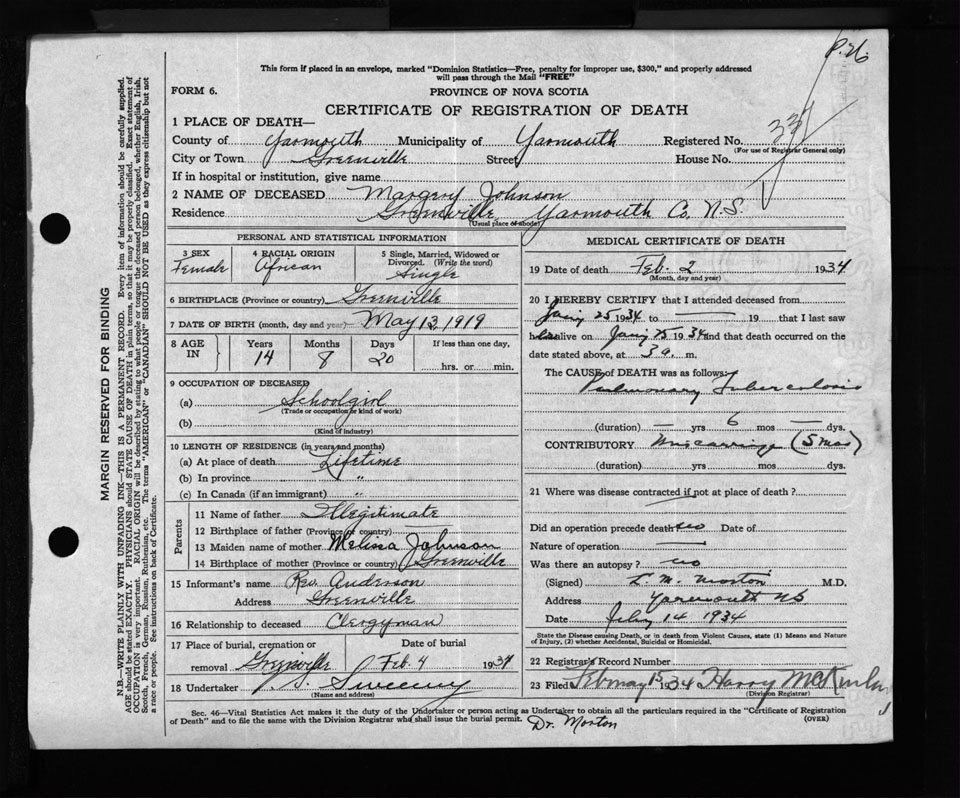 P. 26
This form if placed in an envelope, marked "Dominion Statistics—Free, penalty for improper use, $300," and properly addressed
will pass through the Mail "FREE"
FORM 6. PROVINCE OF NOVA SCOTIA
CERTIFICATE OF REGISTRATION OF DEATH
1 PLACE OF DEATH—
County of Yarmouth Municipality of Yarmouth Registered No.
(For use of Registrar General only)
City or Town Greenville Street House No.
If in hospital or institution, give name
2 NAME OF DECEASED Margery Johnson
Residence Greenville Yarmouth Co. N.S.
(Usual place of abode)
PERSONAL AND STATISTICAL INFORMATION
3 SEX Female
4 RACIAL ORIGIN African
5 Single, Married, Widowed or Divorced. (Write the word) Single
6 BIRTHPLACE (Province or country) Greenville
7 DATE OF BIRTH (month, day and year) May 13, 1919
8 AGE IN Years 14 Months 8 Days 20 If less than one day, hrs. or min.
9 OCCUPATION OF DECEASED
(a) Schoolgirl
(Trade or occupation or kind of work)
(b)
(Kind of industry)
10 LENGTH OF RESIDENCE (in years and months)
(a) At place of death Lifetime
(b) In province "
(c) In Canada (if an immigrant) "
Parents
11 Name of father Illegitimate
12 Birthplace of father (Province or country) —
13 Maiden name of mother Melissa Johnson
14 Birthplace of mother (Province or country) Greenville
15 Informant's name Rev. Anderson
Address Greenville
16 Relationship to deceased Clergyman
17 Place of burial, cremation or removal Greenville Date of burial Feb. 4 1934
18 Undertaker Sweeny
(Name and address)
MEDICAL CERTIFICATE OF DEATH
19 Date of death Feb. 2 1934
(Month, day and year)
20 I HEREBY CERTIFY that I attended deceased from
25 1934 to — 19 that I last saw
h alive on 25 1934 and that death occurred on the
date stated above, at 3 a. m.
The CAUSE of DEATH was as follows:
Pulmonary Tuberculosis
(duration) — yrs 6 mos — dys.
CONTRIBUTORY Miscarriage (5 mos)
(duration) yrs mos dys.
21 Where was disease contracted if not at place of death?
Did an operation precede death? no Date of
Nature of operation —
Was there an autopsy? no
(Signed) L. M. Morton M.D.
Address Yarmouth NS.
Date 14 1934
State the Disease causing Death, or in death from Violent Causes, state (1) Means and Nature
of Injury, (2) whether Accidental, Suicidal or Homicidal.
22 Registrar's Record Number
23 Filed 1934 Harry
(Division Registrar)
Sec. 46—Vital Statistics Act makes it the duty of the Undertaker or person acting as Undertaker to obtain all the particulars required in the "Certificate of Registration
of Death" and to file the same with the Division Registrar who shall issue the burial permit. (OVER)
Dr. Morton
MARGIN RESERVED FOR BINDING
N.B.—WRITE PLAINLY WITH UNFADING INK—THIS IS A PERMANENT RECORD. Every item of information should be carefully supplied.
AGE should be stated EXACTLY. PHYSICIANS should STATE CAUSE OF DEATH in plain terms, so that it may be properly classified. Exact statement of
OCCUPATION is very important. RACIAL ORIGIN will be described by stating to what people or tongue the deceased person belonged, whether English, Irish,
Scotch, French, German, Russian, Ruthenian, etc. The terms "AMERICAN" or "CANADIAN" SHOULD NOT BE USED as they express citizenship but not
a race or people. See instructions on back of Certificate.